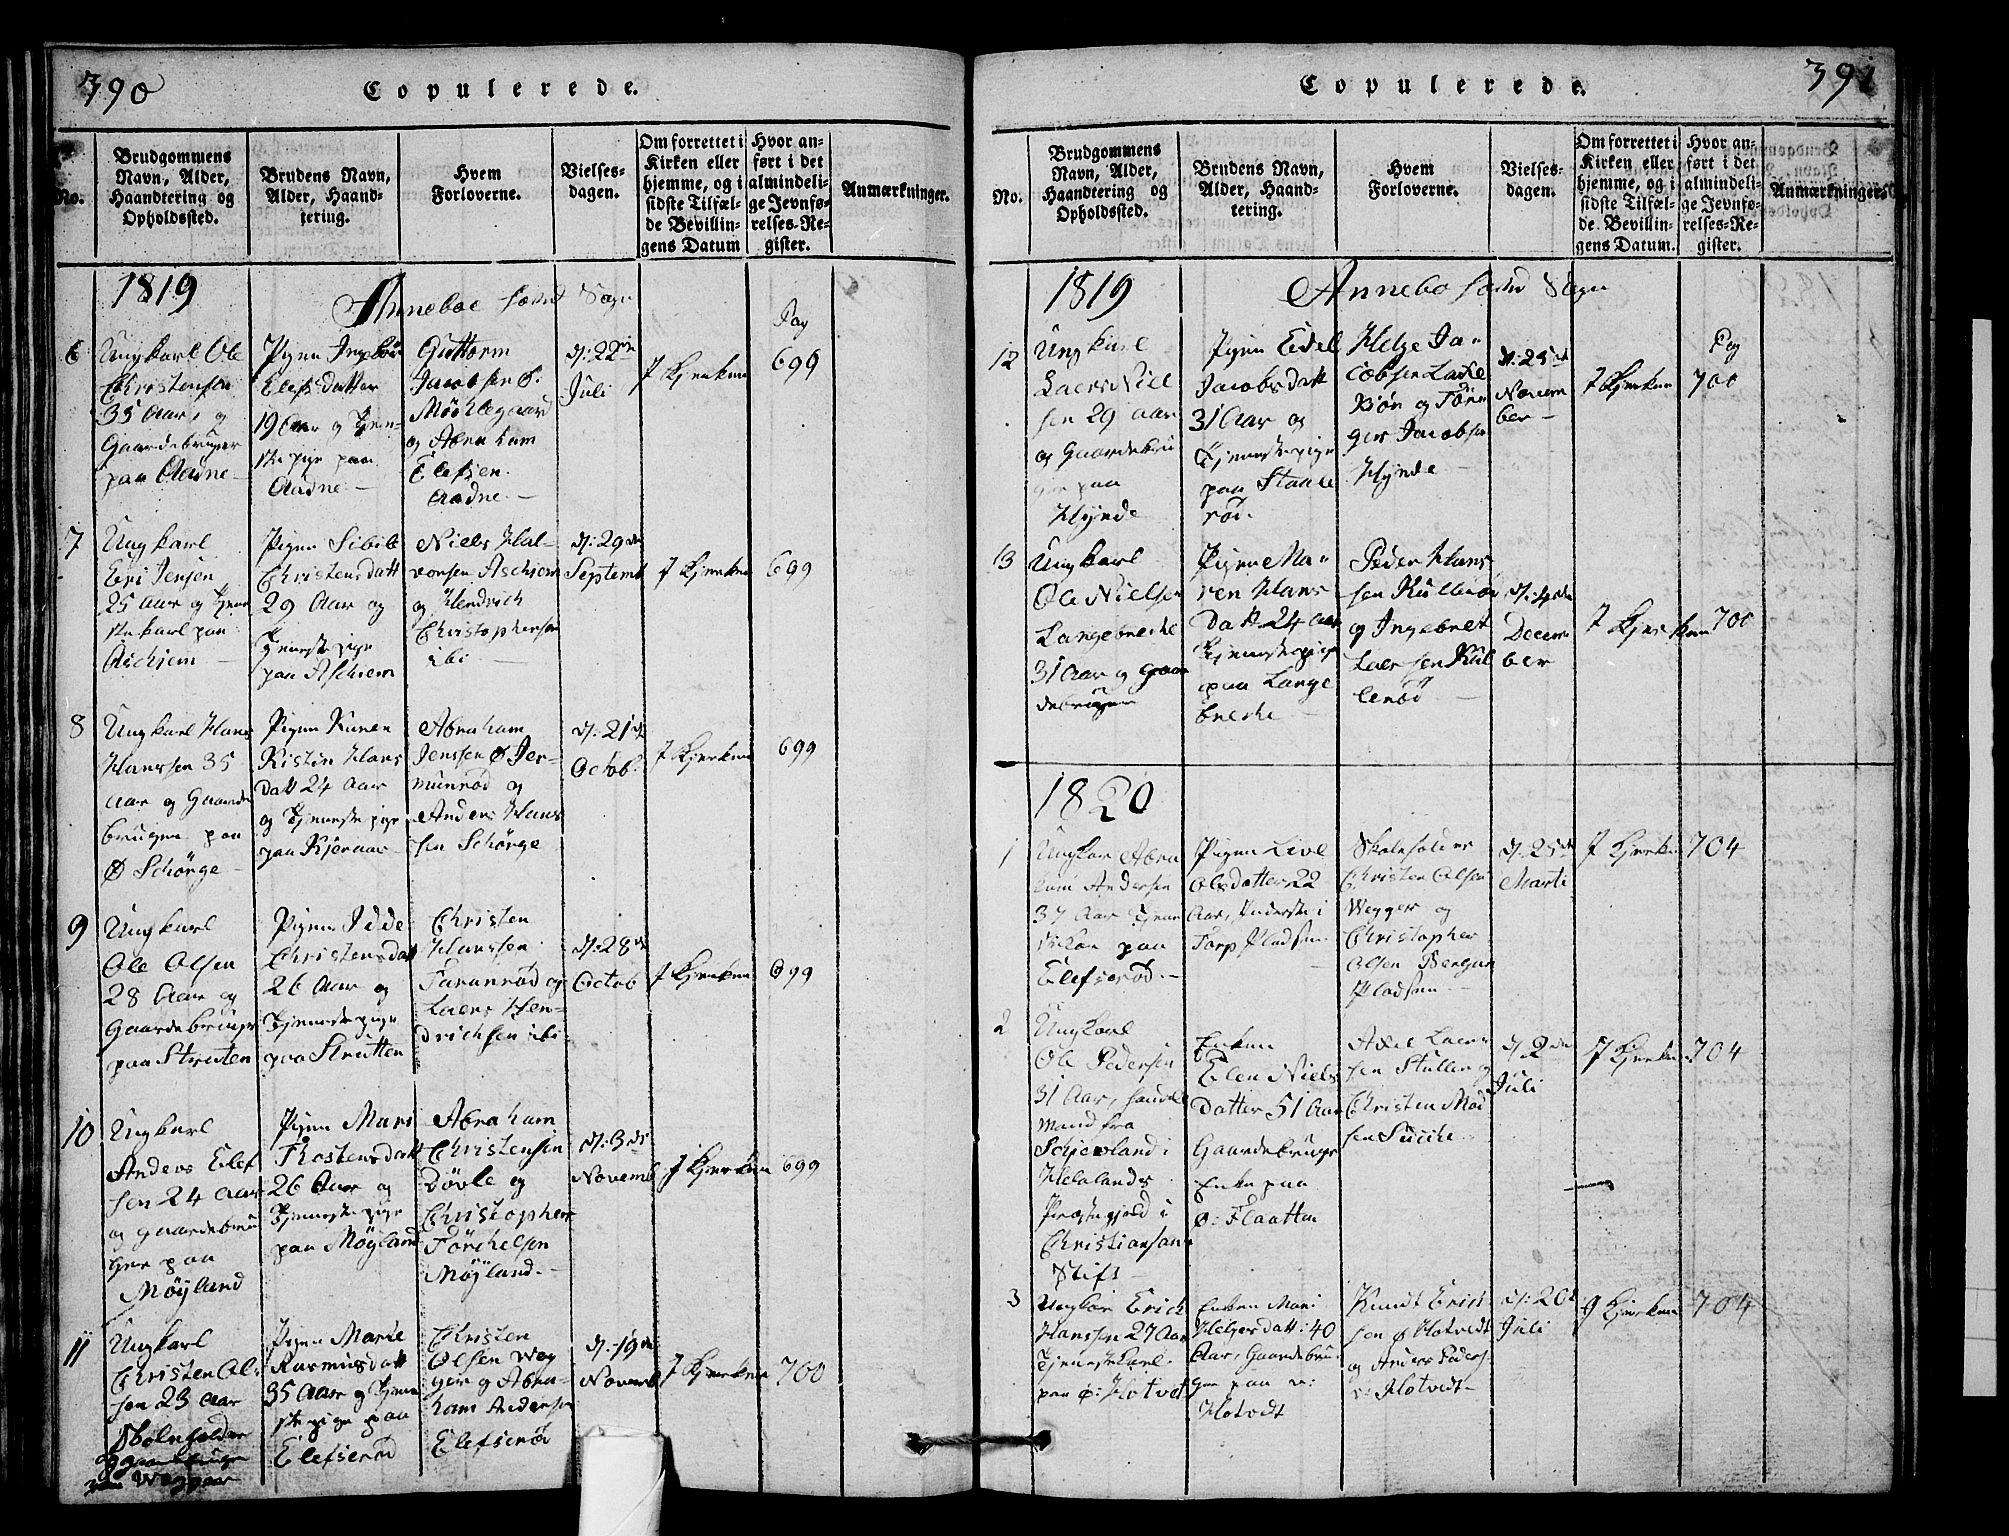 390
Copulerede.
No.
Brudgommens
Navn, Alder,
Haandtering og
Opholdssted.
Brudens Navn,
Alder, Haand-
tering.
Hvem
Forloverne.
Vielses-
dagen.
Om forrettet i
Kirken eller
hjemme, og i
sidste Tilfæl-
de Bevillin-
gens Datum
Hvor an-
ført i det
almindeli-
ge Jevnfø-
relses-Re-
gister.
Anmærkninger.
1819
Anneboe Sogn
Pag
6
Ungkarl Ole
Christensen
35 Aar, og
Gaardebruger
paa Aadne
Pigen Ingebör
Elefsdatter
19 Aar og Tjen-
ste pige paa
Aadne
Guttorm
Jacobsen Ø.
Möchlegaard
og Abraham
Elefsen
Aadne
d: 22de
Juli
J Kjerken
699
7
Ungkarl
Eri Jensen
25 Aar og Tjene
ste karl paa
Aschiem
Pigen Sibil
Christensdatt
29 Aar og
Tjenestepige
paa Aschiem
Niels Hal-
vorsen Aschiem
og Hendrich
Christophersen
ibi
d: 29de
Septemb
J Kjerken
699
8
Ungkarl Hans
Hanssen 35
Aar og Gaarde
bruger paa
Ø Schörge
Pigen Karen
Kistin Hans
datt 24 Aar
og Tjeneste pige
paa Kjernaas
Abraham
Jenssen Ø Jer-
munröd og
Anders Hans
sen Schörge
d: 21de
Octob.
J Kjerken
699
9
Ungkarl
Ole Olsen
28 Aar og
Gaardebruger
paa Strutten
Pigen Idde
Christensdatt
26 Aar og
Tjeneste pige
paa Strutten
Christen
Hanssen
Faranröd og
Laers Hen-
drichsen ibi
d: 28de
Octob
J Kjerken
699
10
Ungkarl
Anders Elef
sen 24 Aar
og gaardebru
ger paa
Möyland
Pigen Mari
Thostensdatt
26 Aar og
Tjeneste pige
paa Möyland
Abraham
Christensen
Bövle og
Christopher
Törchelsen
Möyland
d: 3de
Novemb
J Kjerken
699
11
Ungkarl
Christen Ol-
sen 23 Aar
Skoleholder
og gaardbruger
paa Weggar
Pigen Marte
Rasmusdatt
35 Aar og Tjene
ste pige paa
Elefseröd
Christen
Olsen Weg
ger og Abra
ham Andersen
Elefseröd
d: 19de
Novemb
J Kjerken
700
391
Copulerede.
No.
Brudgommens
Navn, Alder,
Haandtering og
Opholdssted.
Brudens Navn,
Alder, Haand-
tering.
Hvem
Forloverne.
Vielses-
dagen.
Om forrettet i
Kirken eller
hjemme, og i
sidste Tilfæl-
de Bevillin-
gens Datum.
Hvor an-
ført i det
almindeli-
ge Jevnfø-
relses-Re-
gister.
Anmærkninger.
1819
Annebo Sogn
Pag
12
Ungkarl
Laers Niel
sen 29 Aar
og Gaardebru
ger paa
Hynde
Pigen Edel
Jacobsdatt
31 Aar og
Tjenestepige
paa Staale
röd.
Helge Ja-
cobsen Lache
Biön og Tön-
ger Jacobsen
Hynde
d: 25de
Novem
ber
J Kjerken
700
13
Ungkarl
Ole Nielsen
Langebreche
31 Aar og Gaar
debruger
Pigen Ma-
ren Hans
Datt 24 Aar
Tjenestepige
paa Lange
breche
Peder Hans
sen Kulleröd
og Ingebret
Laersen Kul
leröd
d: 4de
Decem
ber
J Kjerken
700
1820
1
Ungkar Abra
ham Andersen
37 Aar Tjene
paa
Elefseröd.
Pigen Live
Olsdatter 22
Aar, Inderste i
Torp Pladsen
Skoleholder
Christen Olsen
Wegger og
Christopher
Olsen Bergan
Pladsen
d: 25de
Marti
J Kjerken
704
2
Ungkarl
Ole Pedersen
31 Aar, handels
mand fra
Schjevland i
Helelands
Præstegjeld i
Christiansan
Stift
Enken
Elen Niels
datter 51 Aar
Gaardebruger
Enke paa
Ø: Flaatten
Axel Laer-
sen Stulen og
Christen Mad
sen Suiche
d 2den
Juli
J Kjerken
704
3
Ungkar Erich
Hanssen 27 Aar
Tjenestekarl
paa Ø: Hotvet
Enken Mari
Helgesdatt: 40
Aar, Gaardebru
ger paa v:
Hotvedt
Knudt Erich
sen Ø Hotvedt
og Anders Peders.
v: Hotvedt
d: 20de
Juli
J Kjerken
704